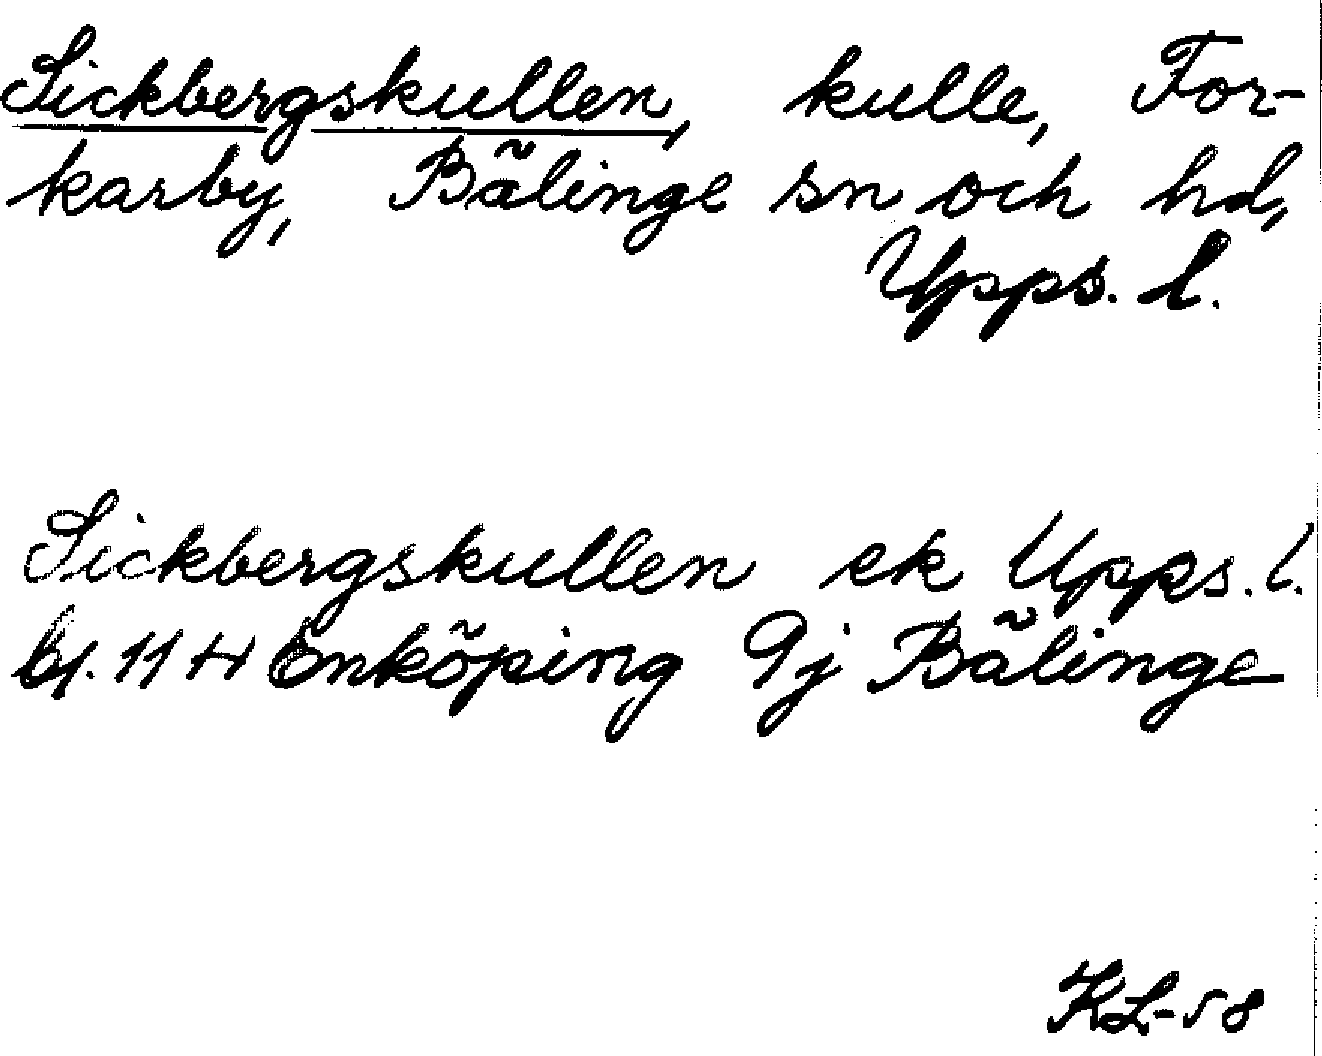 Sickbergskullen, kulle, For-
karby, Bälinge sn och hd,
Upps. l.
Sickbergskullen ek Upps. l.
bl. 11 H Enköping 9j Bälinge
KL-58